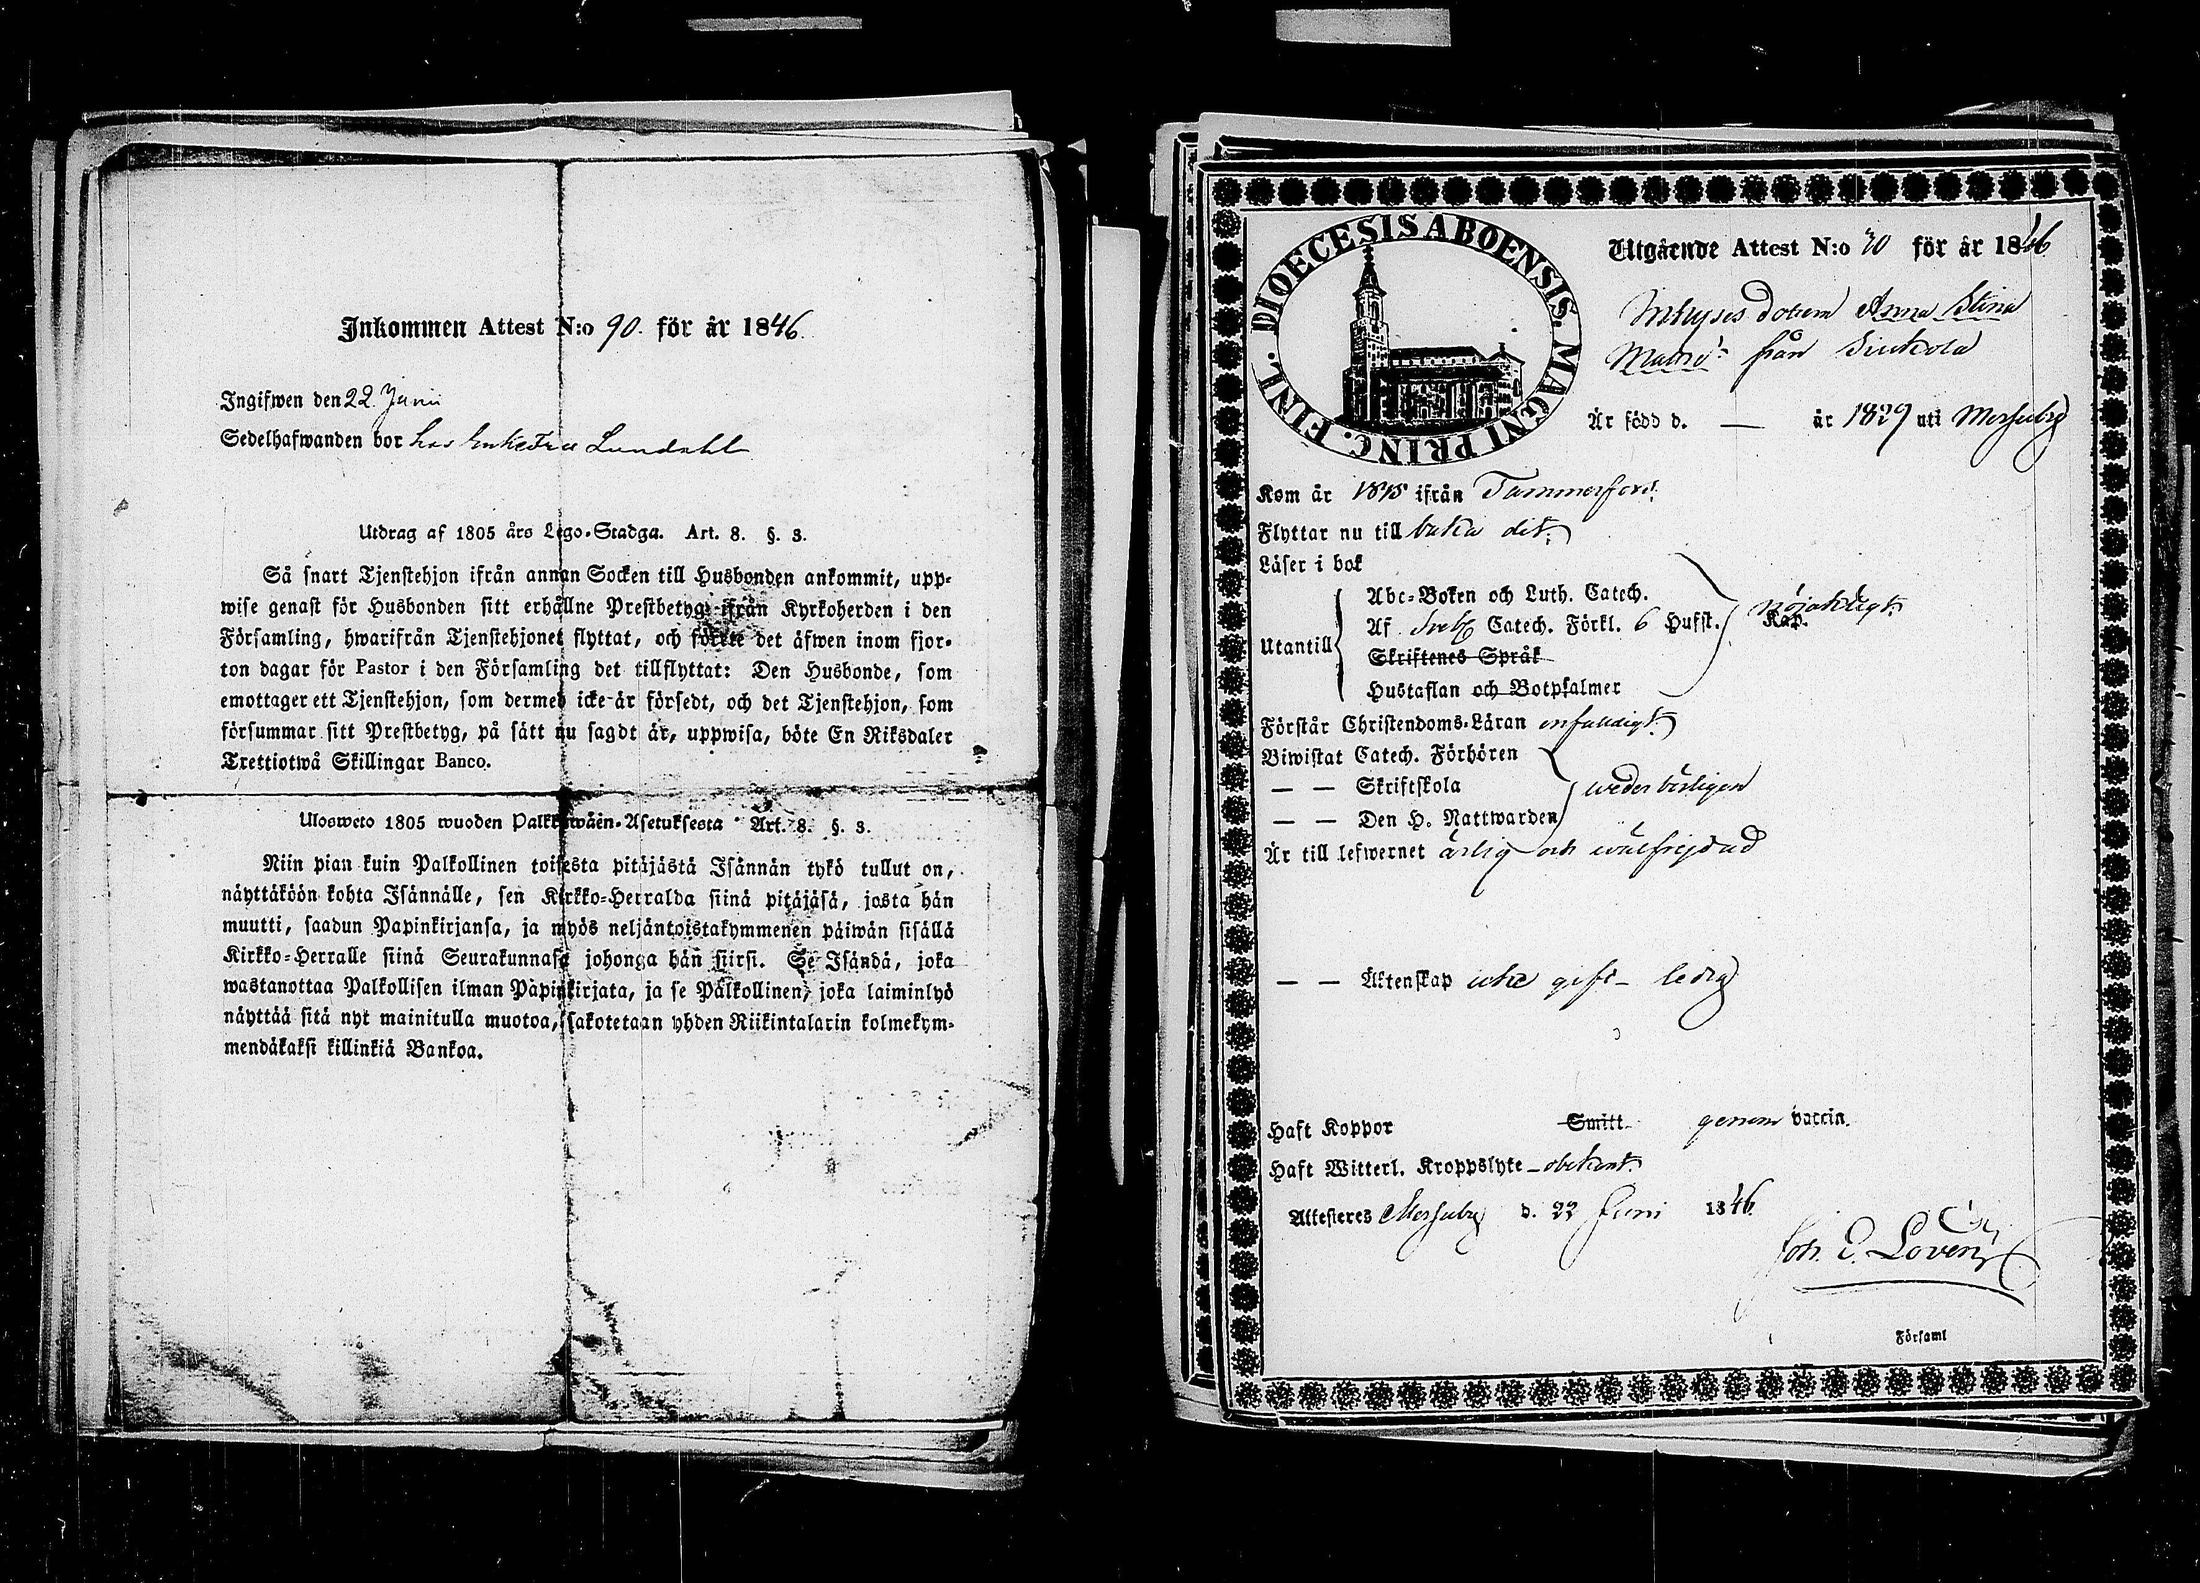 Inkommen Attest N:o 90. för år 1846.
Ingifwen den 22 Juni
Sedelhafwanden bor hos Enkefru Lundahl
Utdrag af 1805 års Lego-Stadga. Art. 8. §. 3.
Så snart Tjenstehjon ifrån annan Socken till Husbonden ankommit, upp-
wise genast för Husbonden sitt erhållne Prestbetyg ifrån Kyrkoherden i den
Församling, hwarifrån Tjenstehjonet flyttat, och förete det äfwen inom fjor-
ton dagar för Pastor i den Församling det tillflyttat: Den Husbonde, som
emottager ett Tjenstehjon, som dermed icke är försedt, och det Tjenstehjon, som
försummar sitt Prestbetyg, på sätt nu sagdt är, uppwisa, böte En Riksdaler
Trettiotwå Skillingar Banco.
Ulosweto 1805 wuoden Palkkawäen-Asetuksesta Art. 8. §. 3.
Niin pian kuin Palkollinen toisesta pitäjästä Isännän tykö tullut on,
näyttäköön kohta Isännälle, sen Kirkko-Herralda siinä pitäjäsä, josta hän
muutti, saadun Papinkirjansa, ja myös neljäntoistakymmenen päiwän sisällä
Kirkko-Herralle siinä Seurakunnasa johonga hän siirsi. Se Isändä, joka
wastanottaa Palkollisen ilman Papinkirjata, ja se Palkollinen, joka laiminlyö
näyttää sitä nyt mainitulla muotoa, sakotetaan yhden Riikintalarin kolmekym-
mendäkaksi killinkiä Bankoa.
DIOECESIS ABOENSIS. MAGNI PRINC. FINL.
Utgående Attest N:o 70 för år 1846
Inhyses Dotren Anna Stina
från
Är född d. — år 1829 uti Messuby
Kom år 1845 ifrån Tammerfors.
Flyttar nu till baka dit.
Läser i bok
Abc-Boken och Luth. Catech.
Utantill Af Sveb. Catech. Förkl. 6 Hufst. Kap. nöjaktligt.
Skriftenes Språk
Hustaflan och Botpsalmer
Förstår Christendoms-Läran enfaldigt.
Biwistat Catech. Förhören
— — Skriftskola wederbörligen
— — Den H. Nattwarden
Är till lefwernet ärlig och wälfrejdad
— — Äktenskap icke gift - ledig
Haft Koppor Smitt. genom vaccin.
Haft Witterl. Kroppslyte - obekant.
Attesteres Messuby d. 22 Juni 1846.
Joh. E. Lovén
Församl